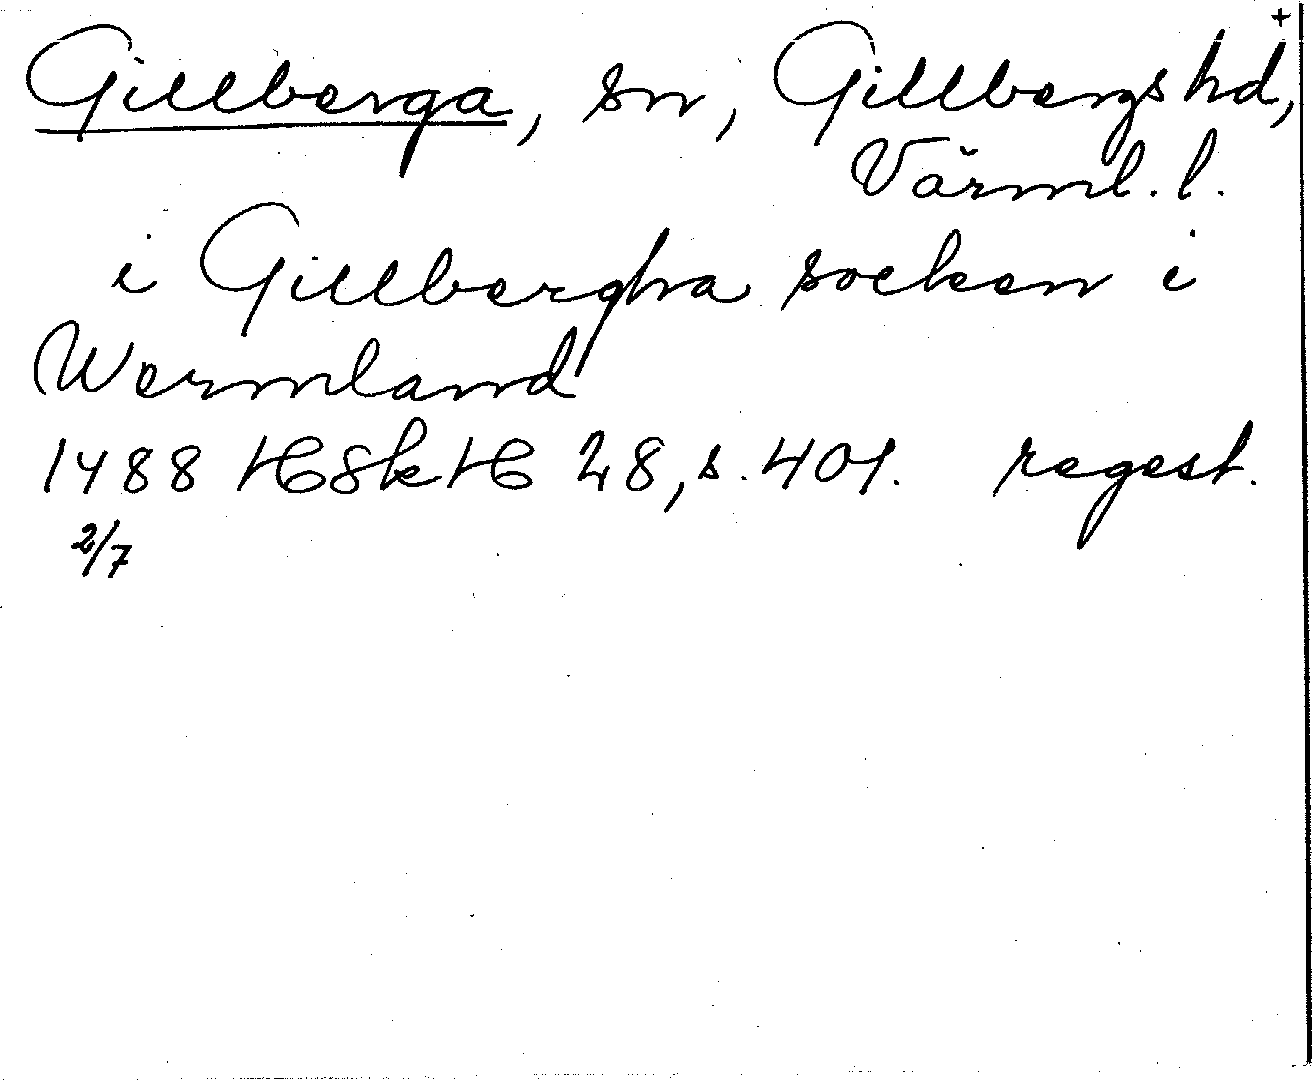 +
Gillberga, sn, Gillbergs hd,
Värml. l.
i Gillbergha socken i
Wermland
1488 HSkH 28, s. 401. regest.
2/7